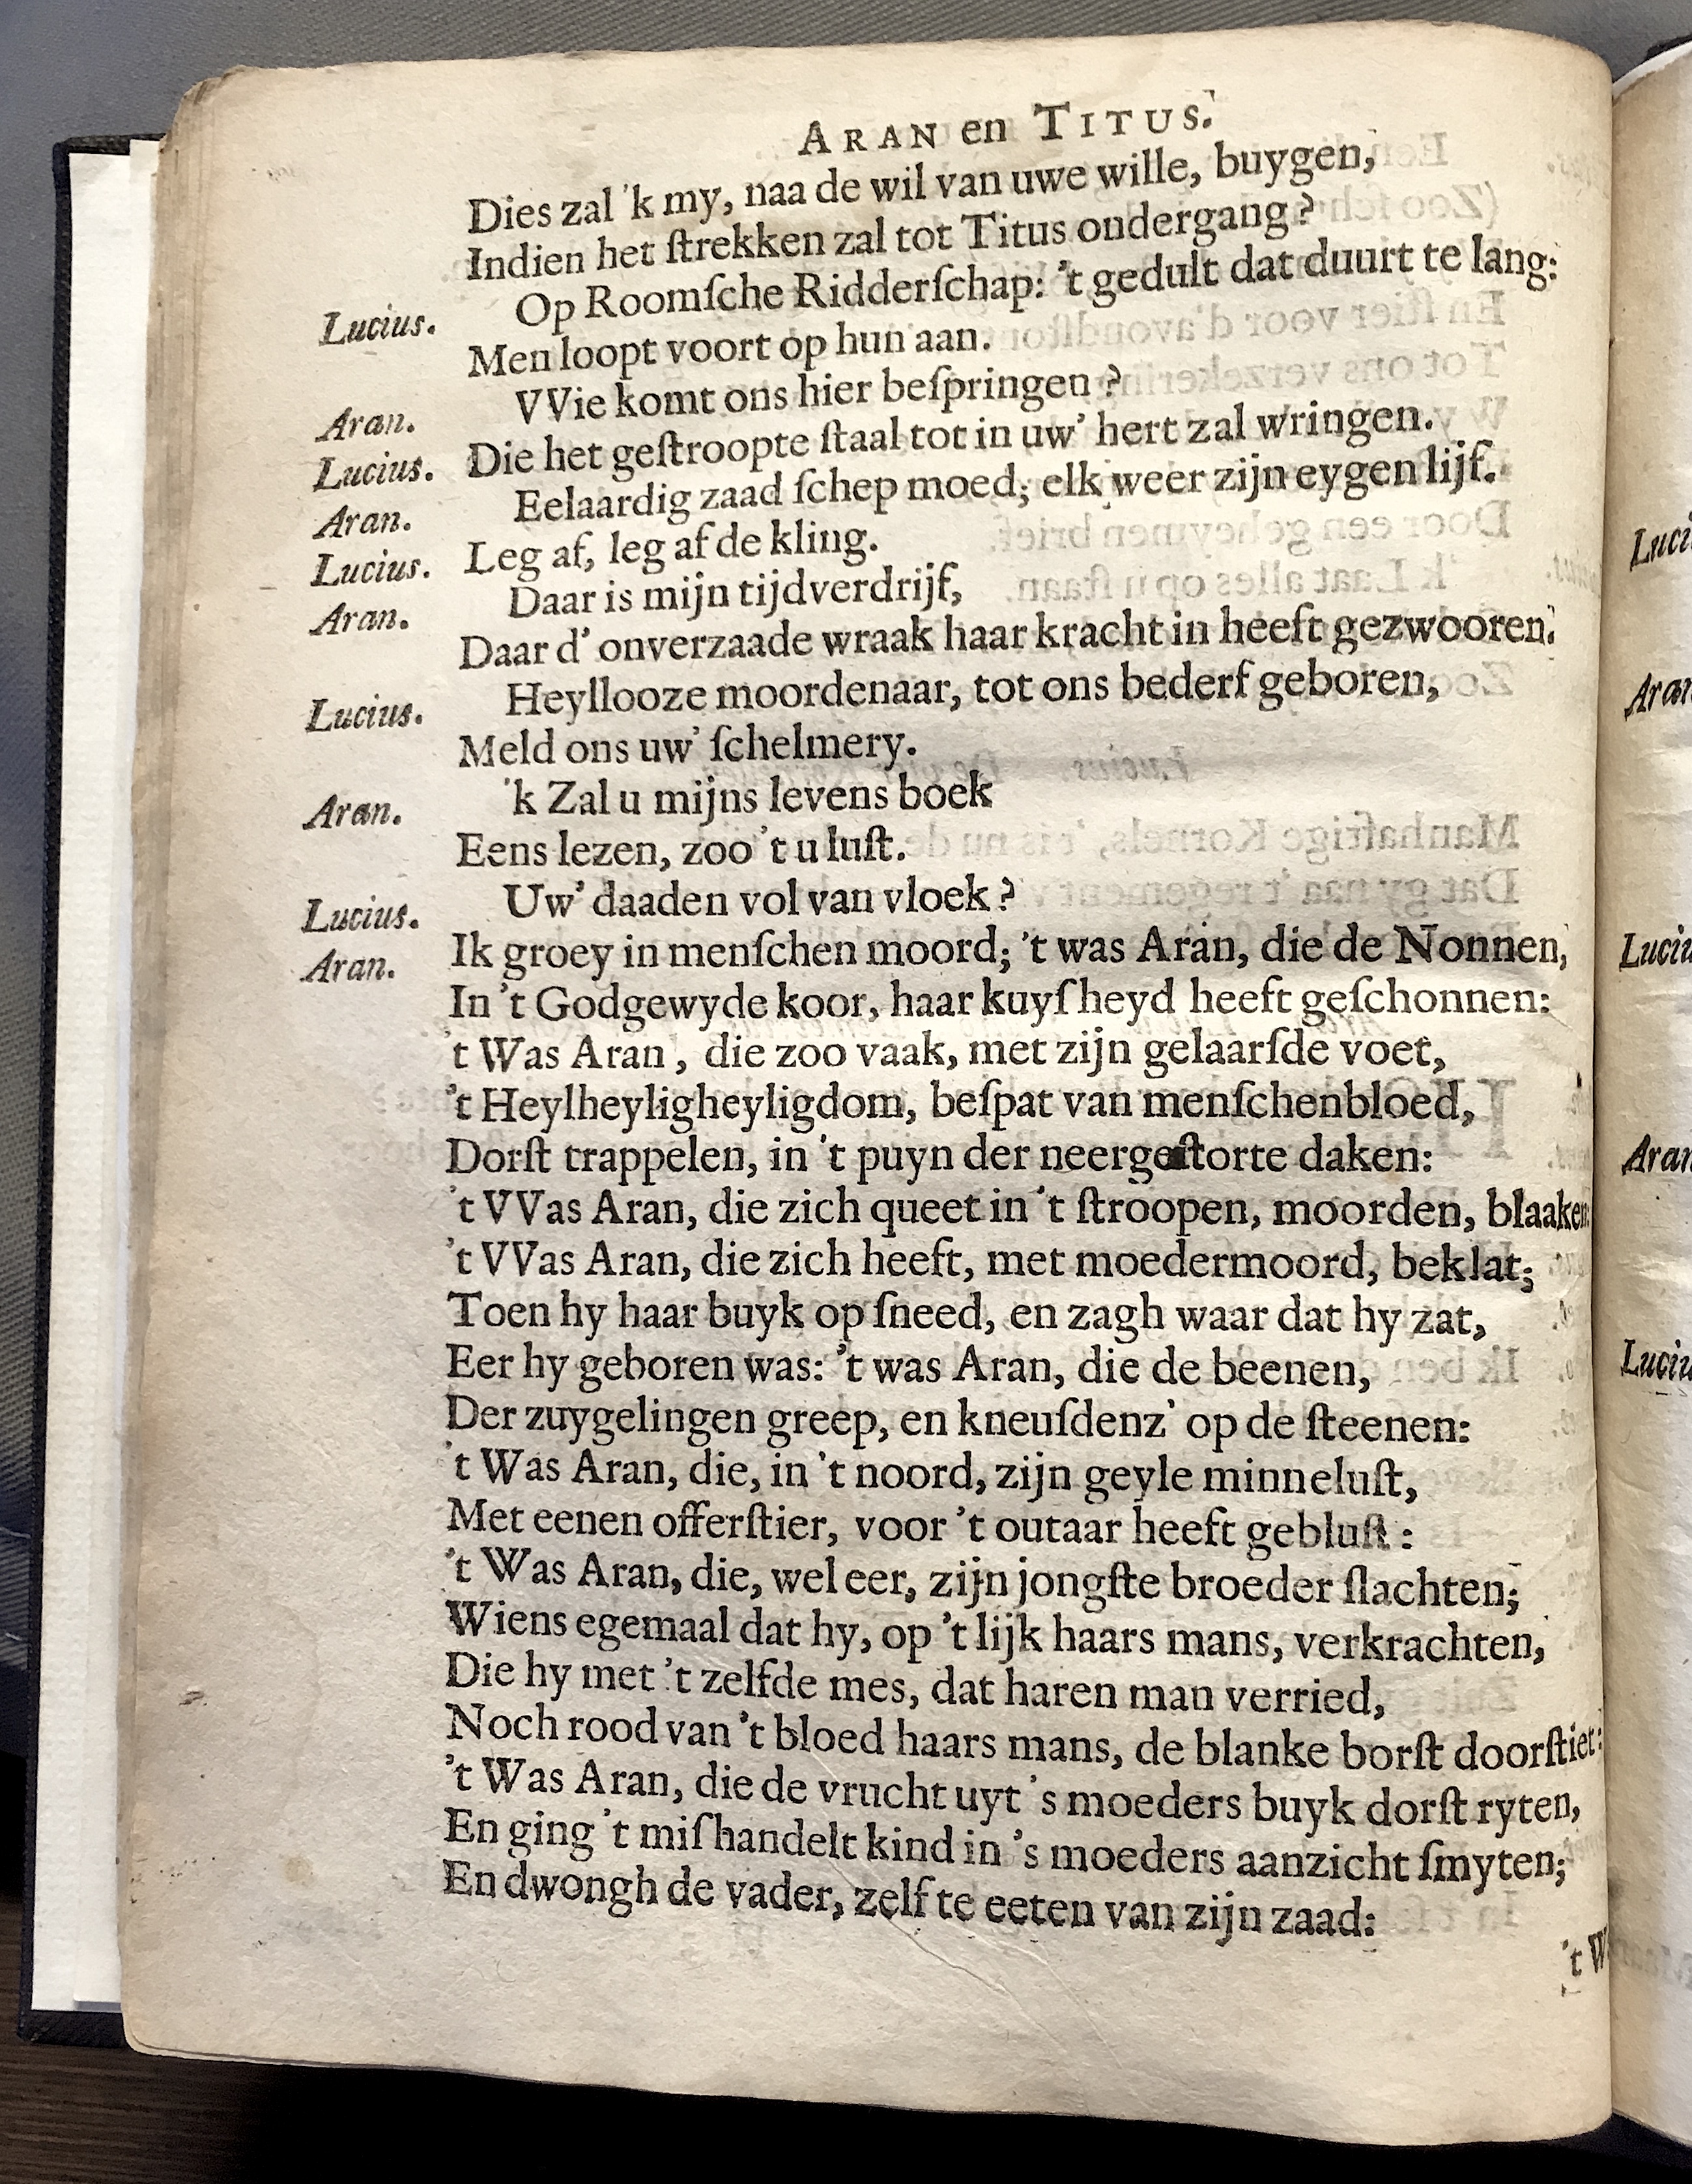 ARAN en TITUS.
Dies zal 'k my, naa de wil van uwe wille, buygen,
Indien het ſtrekken zal tot Titus ondergang?
Lucius. Op Roomſche Ridderſchap: 't gedult dat duurt te lang:
Men loopt voort op hun aan.
Aran. VVie komt ons hier beſpringen?
Lucius. Die het geſtroopte ſtaal tot in uw' hert zal wringen.
Aran. Eelaardig zaad ſchep moed; elk weer zijn eygen lijf.
Lucius. Leg af, leg af de kling.
Aran. Daar is mijn tijdverdrijf,
Daar d' onverzaade wraak haar kracht in heeft gezwooren.
Lucius. Heyllooze moordenaar, tot ons bederf geboren,
Meld ons uw' ſchelmery.
Aran. 'k Zal u mijns levens boek
Eens lezen, zoo 't u luſt.
Lucius. Uw' daaden vol van vloek?
Aran. Ik groey in menſchen moord; 't was Aran, die de Nonnen,
In 't Godgewyde koor, haar kuyſheyd heeft geſchonnen:
't Was Aran, die zoo vaak, met zijn gelaarſde voet,
't Heylheyligheyligdom, beſpat van menſchenbloed,
Dorſt trappelen, in 't puyn der neergeſtorte daken:
't VVas Aran, die zich queet in 't ſtroopen, moorden, blaaken
't VVas Aran, die zich heeft, met moedermoord, beklat;
Toen hy haar buyk op ſneed, en zagh waar dat hy zat,
Eer hy geboren was: 't was Aran, die de beenen,
Der zuygelingen greep, en kneuſdenz' op de ſteenen:
't Was Aran, die, in 't noord, zijn geyle minneluſt,
Met eenen offerſtier, voor 't outaar heeft gebluſt:
't Was Aran, die, wel eer, zijn jongſte broeder ſlachten;
Wiens egemaal dat hy, op 't lijk haars mans, verkrachten,
Die hy met 't zelfde mes, dat haren man verried,
Noch rood van 't bloed haars mans, de blanke borſt doorſtiet:
't Was Aran, die de vrucht uyt 's moeders buyk dorſt ryten,
En ging 't miſhandelt kind in 's moeders aanzicht ſmyten;
En dwongh de vader, zelf te eeten van zijn zaad:
't W
Luci
Aran
Luciu
Aran
Luciu